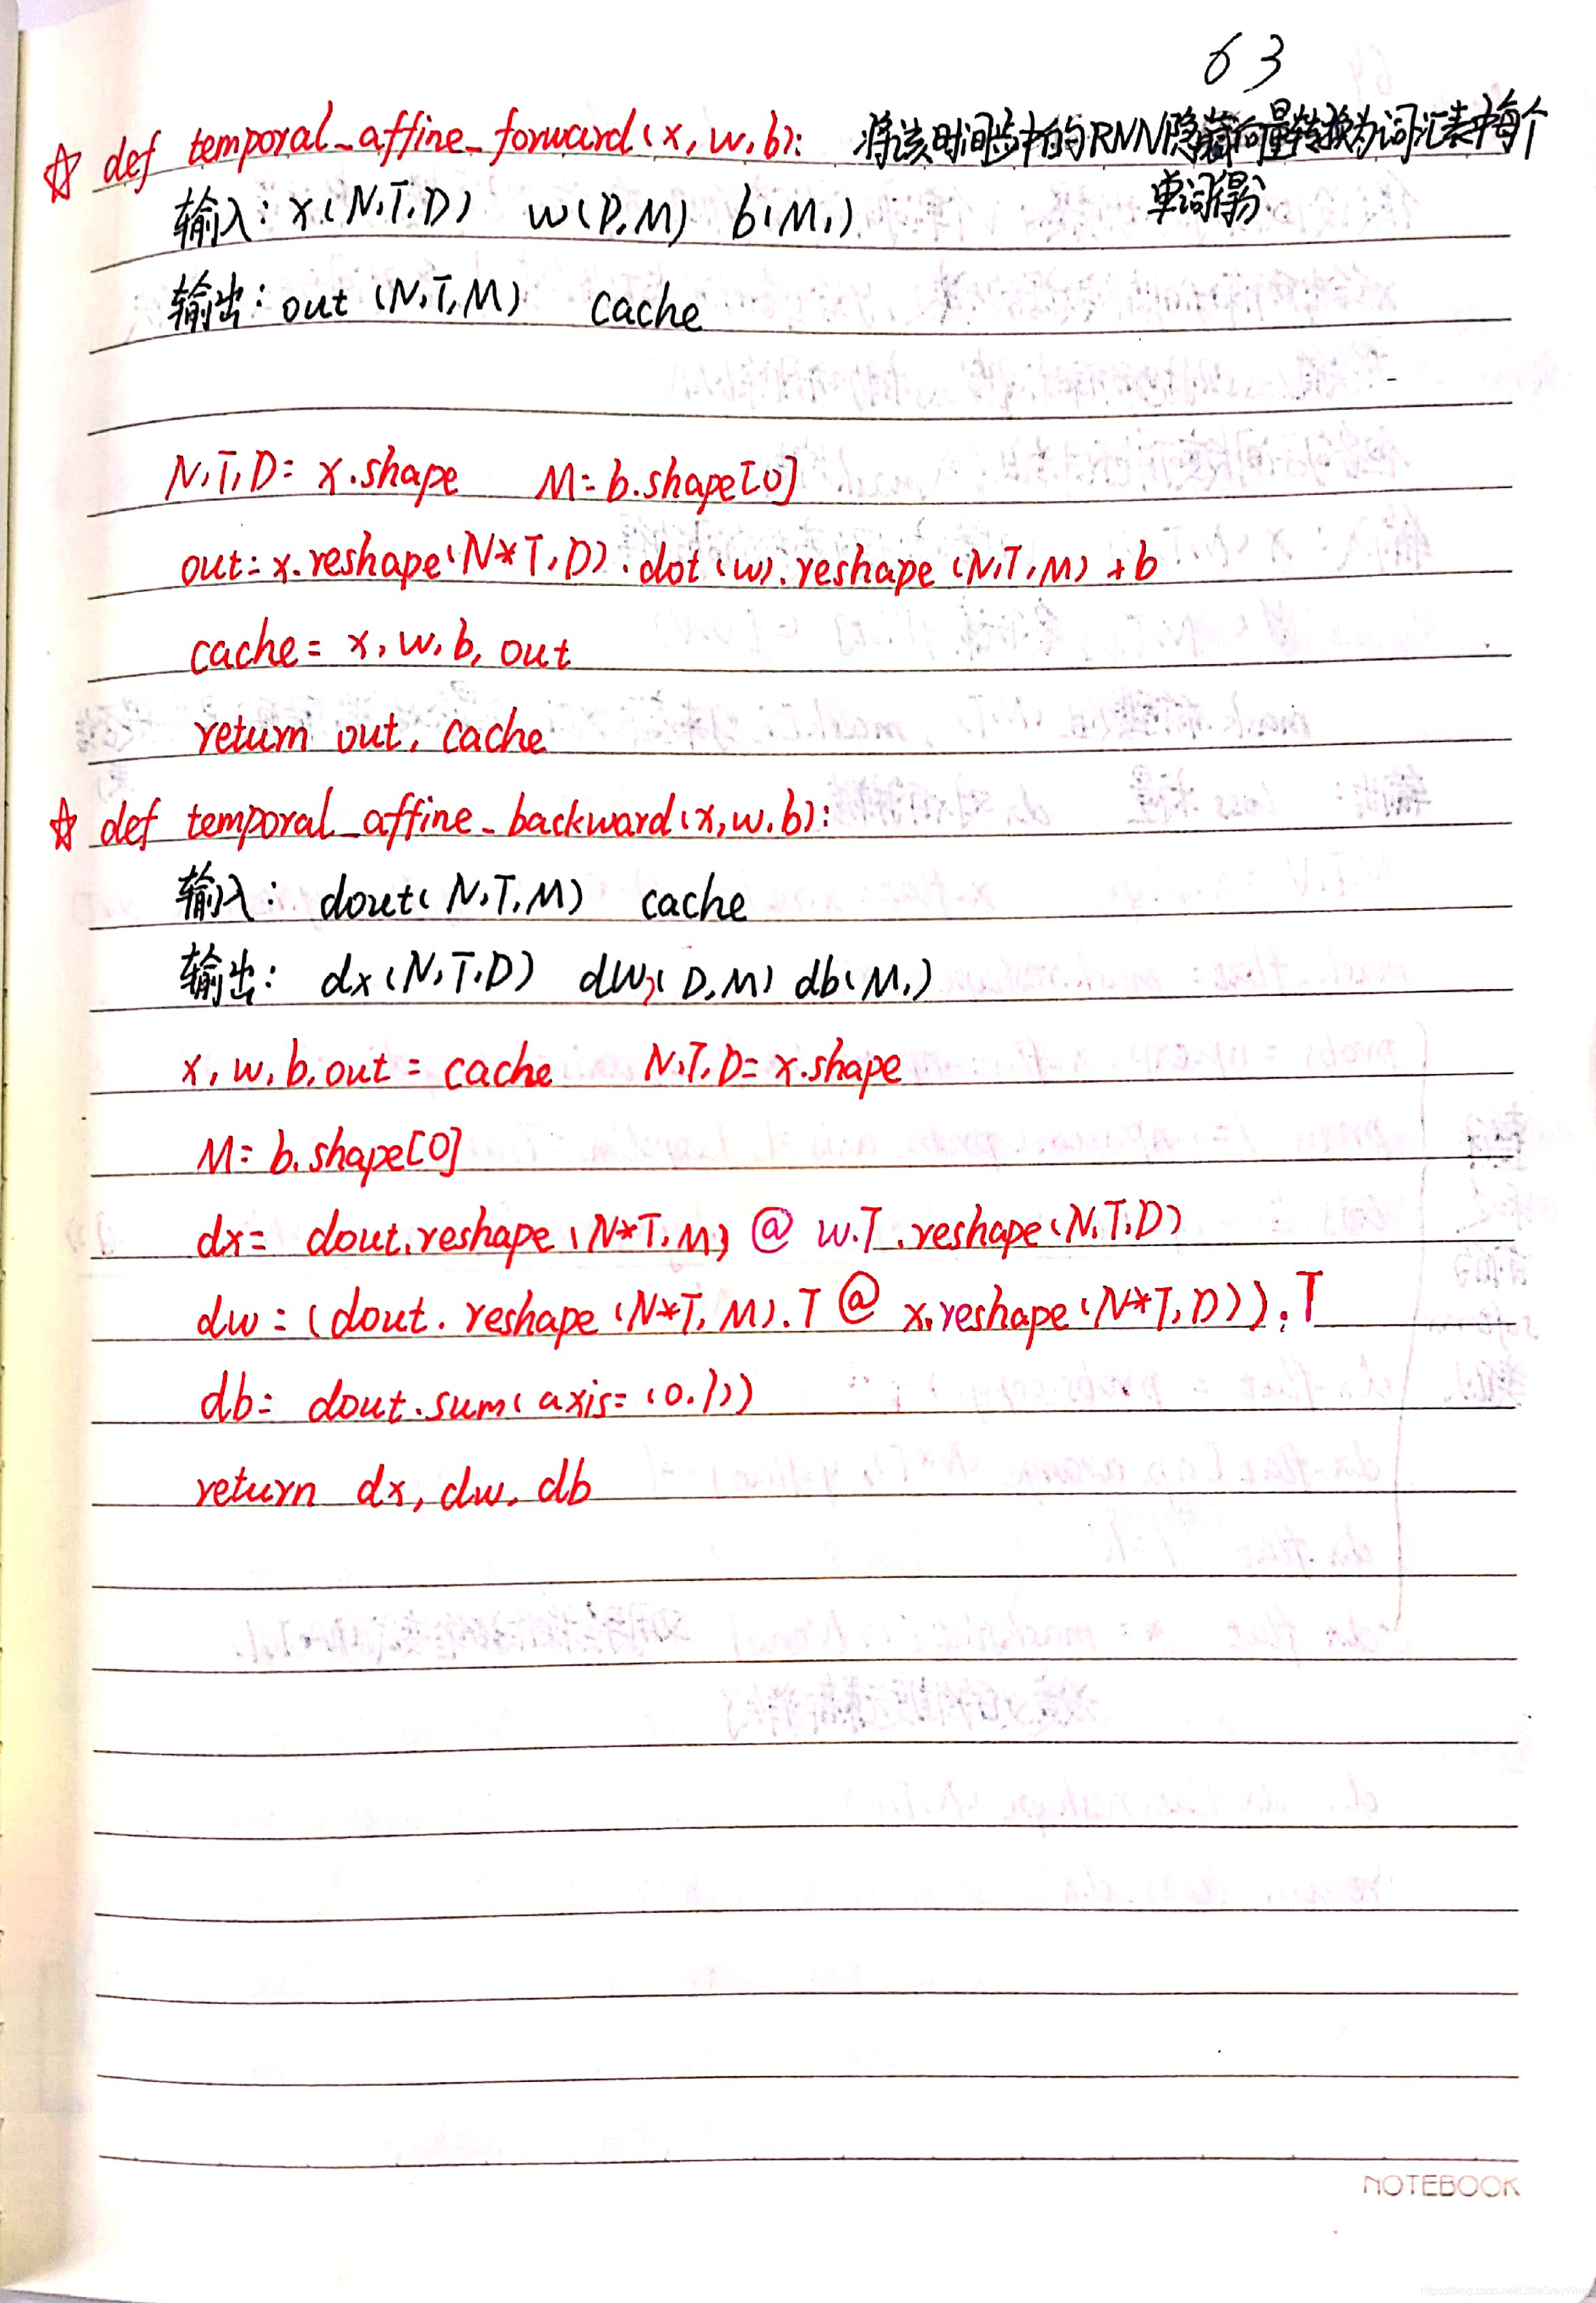 63
☆ def temporal_affine_forward(x, w, b): 将该时间步中的RNN隐藏向量转换为词汇表中每个
单词得分
输入: x(N,T,D) w(D,M) b(M,)
输出: out (N,T,M) cache
N,T,D= x.shape M= b.shape[0]
out= x.reshape(N*T,D).dot(w).reshape(N,T,M) + b
cache= x, w, b, out
return out, cache
☆ def temporal_affine_backward(x,w,b):
输入: dout(N,T,M) cache
输出: dx(N,T,D) dw(D,M) db(M,)
x, w, b, out = cache N,T,D= x.shape
M= b.shape[0]
dx= dout.reshape(N*T,M) @ w.T.reshape(N,T,D)
dw=(dout.reshape(N*T,M).T @ x.reshape(N*T,D)).T
db= dout.sum(axis=(0,1))
return dx, dw, db
NOTEBOOK